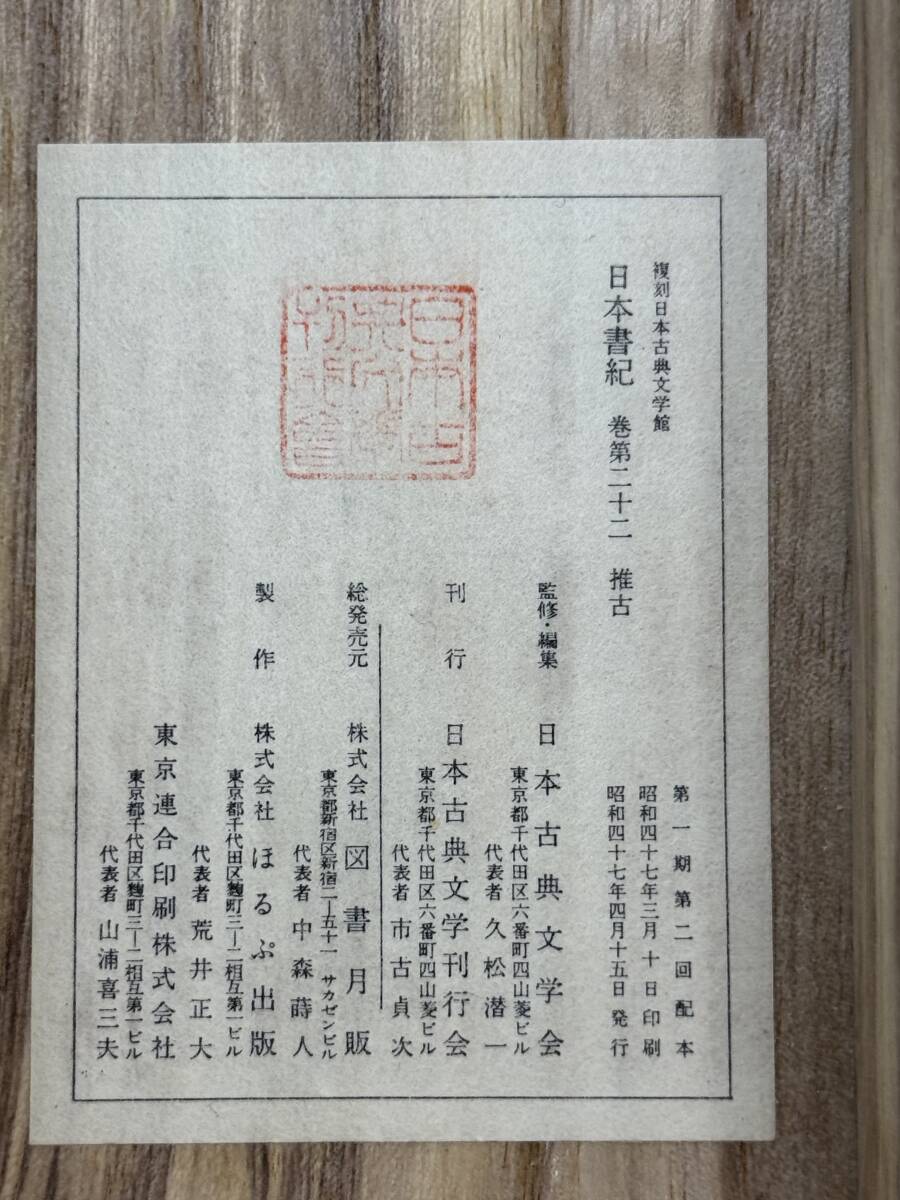 複刻日本古典文学館
日本書紀 巻第二十二 推古
第一期第二回配本
昭和四十七年三月十日印刷
昭和四十七年四月十五日発行
監修・編集 日本古典文学会
東京都千代田区六番町四山菱ビル
代表者 久松潜一
刊行 日本古典文学刊行会
東京都千代田区六番町四山菱ビル
代表者 市古貞次
総発売元 株式会社 図書月販
東京都新宿区新宿二―五十一 サカゼンビル
代表者 中森蒔人
製作 株式会社 ほるぷ出版
東京都千代田区麹町三―二相互第一ビル
代表者 荒井正大
東京連合印刷株式会社
東京都千代田区麹町三―二相互第一ビル
代表者 山浦喜三夫
日本古
刊行會